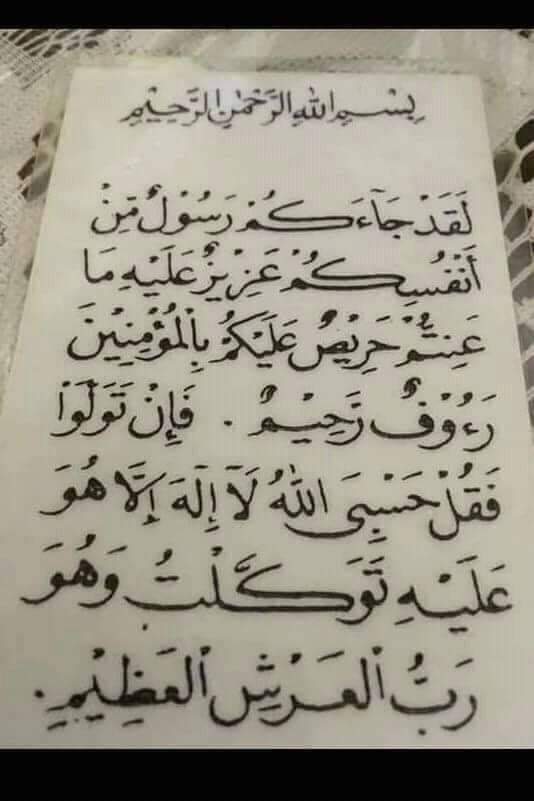 بِسْمِ اللهِ الرَّحْمٰنِ الرَّحِيْمِ
لَقَدْ جَآءَكُمْ رَسُوْلٌ مِّنْ
أَنْفُسِكُمْ عَزِيْزٌ عَلَيْهِ مَا
عَنِتُّمْ حَرِيْصٌ عَلَيْكُمْ بِالْمُؤْمِنِيْنَ
رَءُوْفٌ رَّحِيْمٌ . فَإِنْ تَوَلَّوْا
فَقُلْ حَسْبِيَ اللهُ لَآ إِلَهَ إِلَّا هُوَ
عَلَيْهِ تَوَكَّلْتُ وَهُوَ
رَبُّ الْعَرْشِ الْعَظِيْمِ .